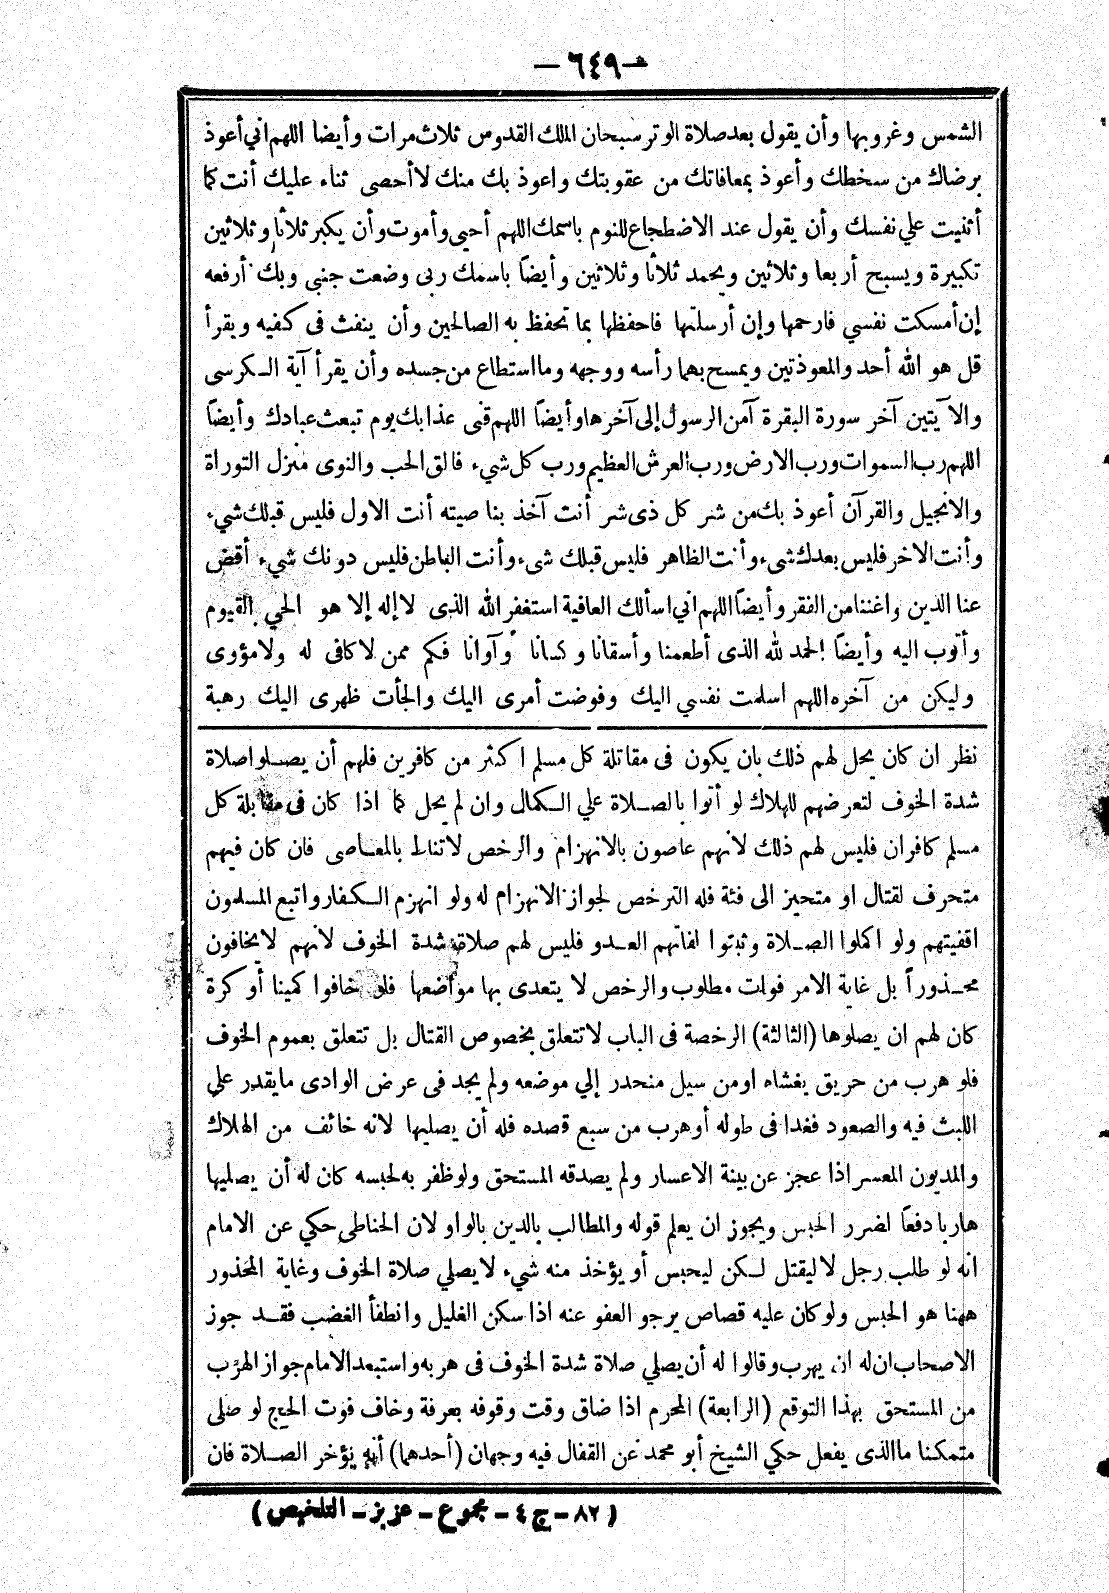 — ٦٤٩ —
الشمس وغروبها وأن يقول بعد صلاة الوتر سبحان الملك القدوس ثلاث مرات وأيضا اللهم اني أعوذ
برضاك من سخطك وأعوذ بمعافاتك من عقوبتك واعوذ بك منك لا أحصى ثناء عليك أنت كما
أثنيت علي نفسك وأن يقول عند الاضطجاع للنوم باسمك اللهم أحيي وأموت وأن يكبر ثلاثا وثلاثين
تكبيرة ويسبح أربعا وثلاثين ويحمد ثلاثا وثلاثين وأيضاً باسمك ربى وضعت جنبي وبك أرفعه
إن أمسكت نفسي فارحمها وإن أرسلتها فاحفظها بما تحفظ به الصالحين وأن ينفث فى كفيه ويقرأ
قل هو الله أحد والمعوذتين ويمسح بهما رأسه ووجهه وما استطاع من جسده وأن يقرأ آية الكرسى
والآيتين آخر سورة البقرة آمن الرسول إلى آخرها وأيضاً اللهم قنى عذابك يوم تبعث عبادك وأيضاً
اللهم رب السموات ورب الارض ورب العرش العظيم ورب كل شيء فالق الحب والنوى منزل التوراة
والانجيل والقرآن أعوذ بك من شر كل ذى شر أنت آخذ بناصيته أنت الاول فليس قبلك شيء
وأنت الاخر فليس بعدك شىء وأنت الظاهر فليس قبلك شىء وأنت الباطن فليس دونك شيء أقض
عنا الدين واغننا من الفقر وأيضاً اللهم اني اسألك العافية استغفر الله الذى لا إله إلا هو الحي القيوم
وأتوب اليه وأيضاً الحمد لله الذى أطعمنا وأسقانا وكسانا وآوانا فكم ممن لا كافى له ولا مؤوى
وليكن من آخره اللهم اسلمت نفسي اليك وفوضت أمرى اليك والجأت ظهرى اليك رهبة
نظر ان كان يحل لهم ذلك بان يكون فى مقاتلة كل مسلم اكثر من كافرين فلهم أن يصلوا صلاة
شدة الخوف لتعرضهم للهلاك لو أتوا بالصلاة علي الكمال وان لم يحل كما اذا كان فى مقابلة كل
مسلم كافران فليس لهم ذلك لانهم عاصون بالانهزام والرخص لا تناط بالمعاصى فان كان فيهم
متحرف لقتال او متحيز الى فئة فله الترخص لجواز الانهزام له ولو انهزم الكفار واتبع المسلمون
اقفيتهم ولو اكملوا الصلاة وثبتوا لفاتهم العدو فليس لهم صلاة شدة الخوف لانهم لا يخافون
محذوراً بل غاية الامر فوات مطلوب والرخص لا يتعدى بها مواضعها فلو خافوا كمينا أو كرة
كان لهم ان يصلوها (الثالثة) الرخصة فى الباب لا تتعلق بخصوص القتال بل تتعلق بعموم الخوف
فلو هرب من حريق يغشاه او من سيل منحدر إلي موضعه ولم يجد فى عرض الوادى ما يقدر علي
اللبث فيه والصعود فغدا فى طوله أو هرب من سبع قصده فله أن يصليها لانه خائف من الهلاك
والمديون المعسر اذا عجز عن بينة الاعسار ولم يصدقه المستحق ولو ظفر به لحبسه كان له أن يصليها
هاربا دفعاً لضرر الحبس ويجوز ان يعلم قوله والمطالب بالدين بالواو لان الحناطى حكي عن الامام
انه لو طلب رجل لا ليقتل لكن ليحبس أو يؤخذ منه شيء لا يصلي صلاة الخوف وغاية المحذور
ههنا هو الحبس ولو كان عليه قصاص يرجو العفو عنه اذا سكن الغليل وانطفأ الغضب فقد جوز
الاصحاب ان له ان يهرب وقالوا له أن يصلي صلاة شدة الخوف فى هربه واستبعد الامام جواز الهرب
من المستحق بهذا التوقع (الرابعة) المحرم اذا ضاق وقت وقوفه بعرفة وخاف فوت الحج لو صلى
متمكنا ما الذى يفعل حكي الشيخ أبو محمد عن القفال فيه وجهان (أحدهما) أنه يؤخر الصلاة فان
(٨٢ – ج ٤ – مجموع – عزيز – التلخيص)